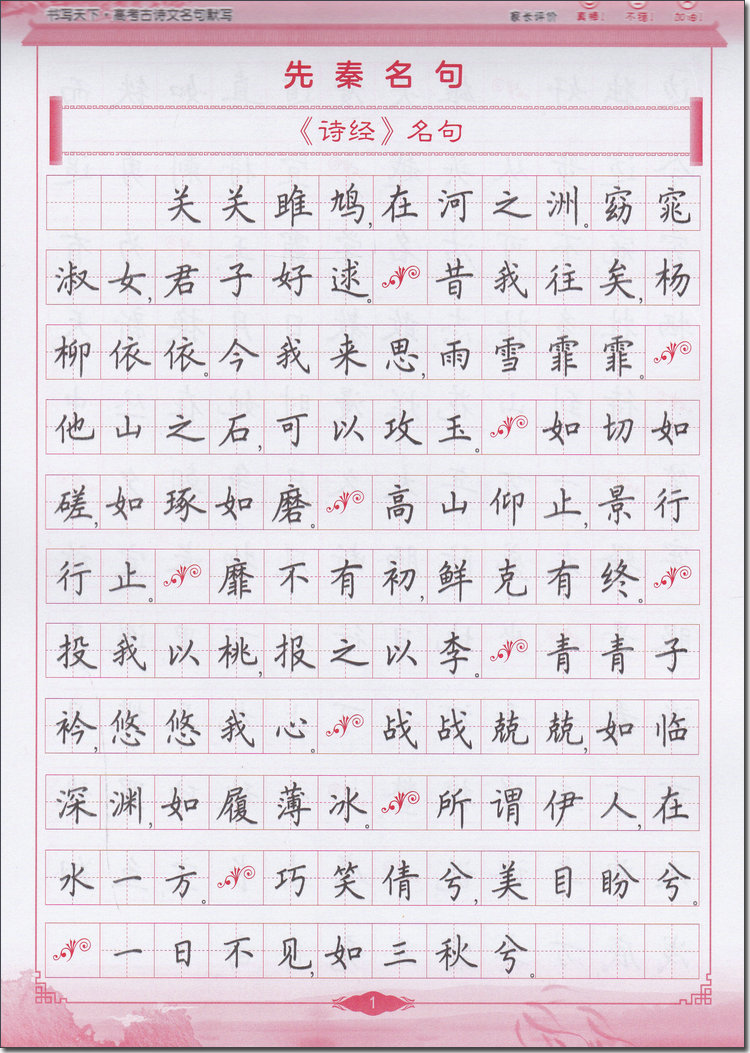 书写天下·高考古诗文名句默写 家长评价 真棒! 不错! 加油!
先秦名句
《诗经》名句
关关雎鸠,在河之洲。窈窕
淑女,君子好逑。昔我往矣,杨
柳依依。今我来思,雨雪霏霏。
他山之石,可以攻玉。如切如
磋,如琢如磨。高山仰止,景行
行止。靡不有初,鲜克有终。
投我以桃,报之以李。青青子
衿,悠悠我心。战战兢兢,如临
深渊,如履薄冰。所谓伊人,在
水一方。巧笑倩兮,美目盼兮。
一日不见,如三秋兮。
1